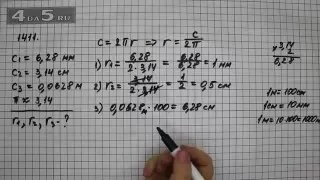 4DA5.RU
1411.
C = 2πr ⇒ r = C/2π
C₁ = 6,28 мм
C₂ = 3,14 см
C₃ = 0,0628 м
π ≈ 3,14
r₁, r₂, r₃ - ?
1) r₁ = 6,28/2·3,14 = 6,28/6,28 = 1 мм
2) r₂ = 3,14/2·3,14 = 1/2 = 0,5 см
3) 0,0628 м · 100 = 6,28 см
× 3,14
2
6,28
1м = 100см
1см = 10мм
1м = 10·100 = 1000мм